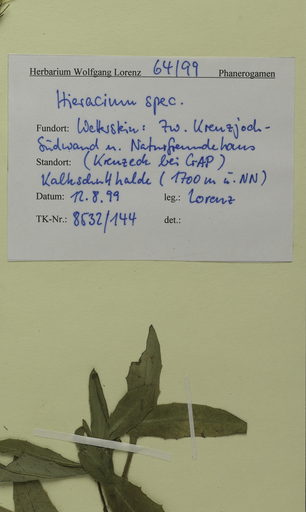 Herbarium Wolfgang Lorenz 64/99 Phanerogamen
Hieracium spec.
Fundort: Wetterstein: Zw. Kreuzjoch-
Südwand u. Naturfreundehaus
Standort: (Kreuzeck bei GAP)
Kalkschutthalde (1700 m ü. NN)
Datum: 12.8.99 leg.: Lorenz
TK-Nr.: 8532/144 det.: